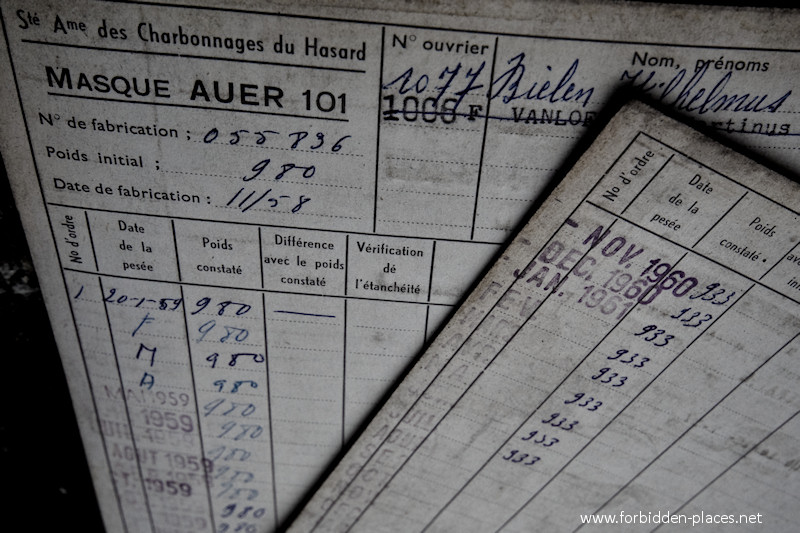 Sté Ame des Charbonnages du Hasard
MASQUE AUER 101
N° de fabrication ; 055896
Poids initial ; 980
Date de fabrication : 11/58
N° ouvrier
Nom, prénoms
1077 Bielen Wilhelmus
1006 F
N° d'ordre
Date de la pesée
Poids constaté
Différence avec le poids constaté
Vérification de l'étanchéité
1 20-1-59 980
F 980
M 980
A 980
MAI 1959 980
1959 980
AOUT 1959
1959
N° d'ordre
Date de la pesée
Poids constaté.
NOV 1960 933
DEC. 1960 933
JAN. 1961 933
933
933
933
933
933
933
www.forbidden-places.net